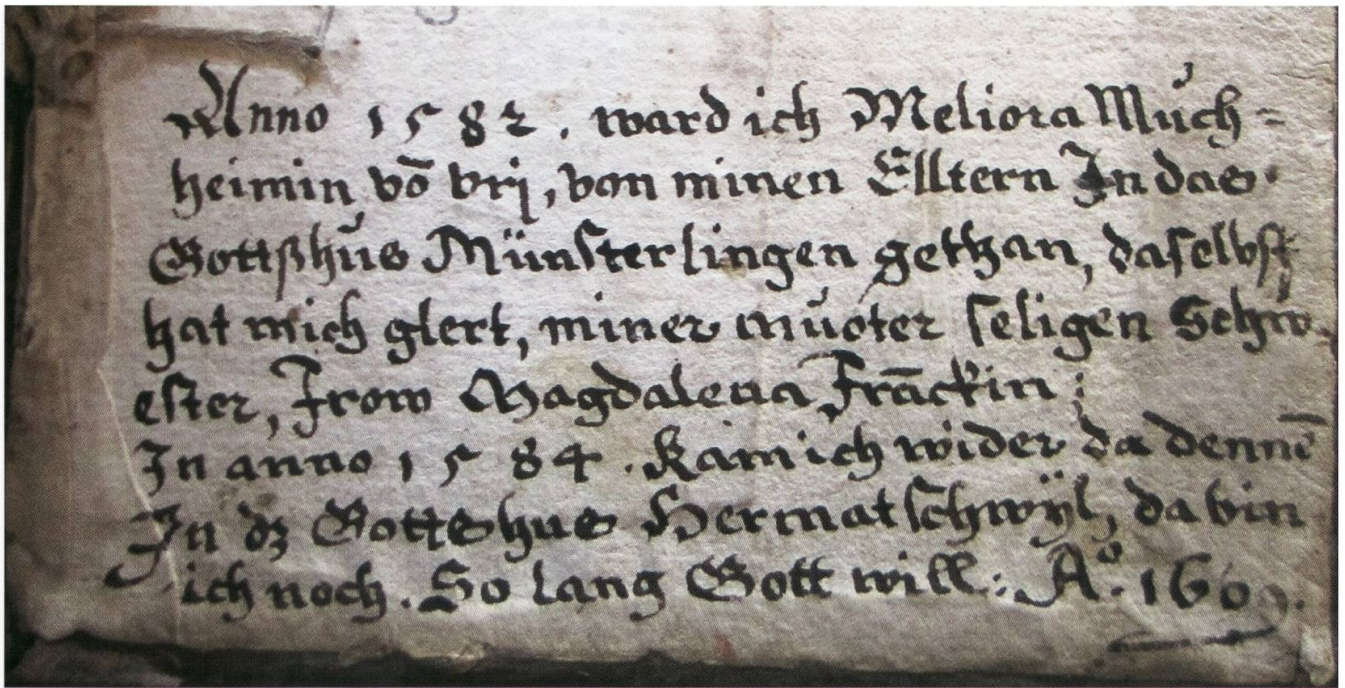 Anno 1582. ward ich Meliora Můch=
heimin võ vrij, von minen Elltern In das
Gottßhus Münsterlingen gethan, daselbst
hat mich glert, miner můoter seligen Schw-
ester, Frow Magdalena Frãckin:
In anno 1584. kam ich wider da dennẽ
In dz Gotteshus Hermatschwÿl, da bin
ich noch. So lang Gott will: Aº. 1609.